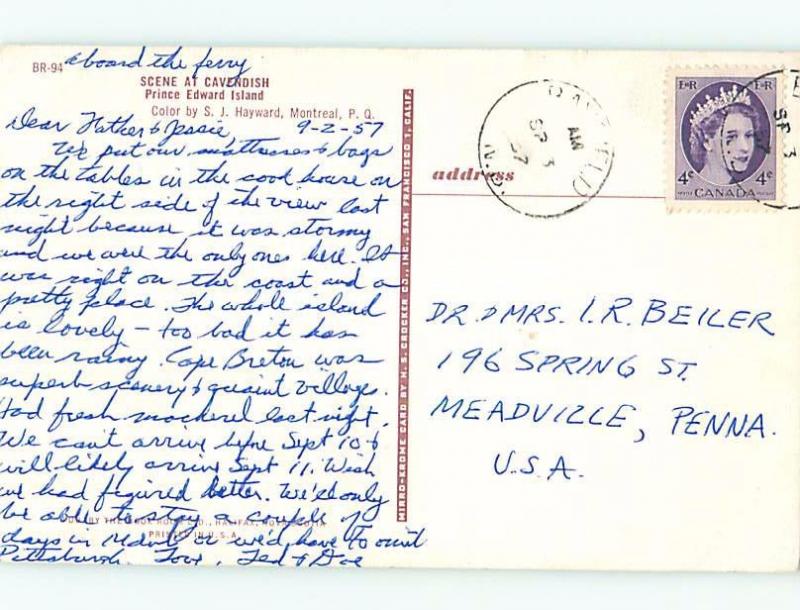 aboard the ferry
BR-94
SCENE AT CAVENDISH
Prince Edward Island
Color by S. J. Hayward, Montreal, P. Q.
Dear Father & Jessie, 9-2-57
We put our mattresses & bags
on the tables in the cook house on
the right side of the view last
night because it was stormy
and we were the only ones here. It
was right on the coast and a
pretty place. The whole island
is lovely — too bad it has
been rainy. Cape Breton was
superb scenery & quaint villages.
Had fresh mackerel last night.
We can't arrive before Sept 10 &
will likely arrive Sept 11. Wish
we had figured better. We'd only
be able to stay a couple of
days in or we'd have to omit
Pittsburgh. Love, Ted & Doe
PRINTED IN U.S.A.
MIRRO-KROME CARD BY H. S. CROCKER CO., INC., SAN FRANCISCO 1, CALIF.
address
AM
SP 3
57
E R
4¢ 4¢
CANADA
SP 3
DR. & MRS. I. R. BEILER
196 SPRING ST.
MEADVILLE, PENNA.
U.S.A.